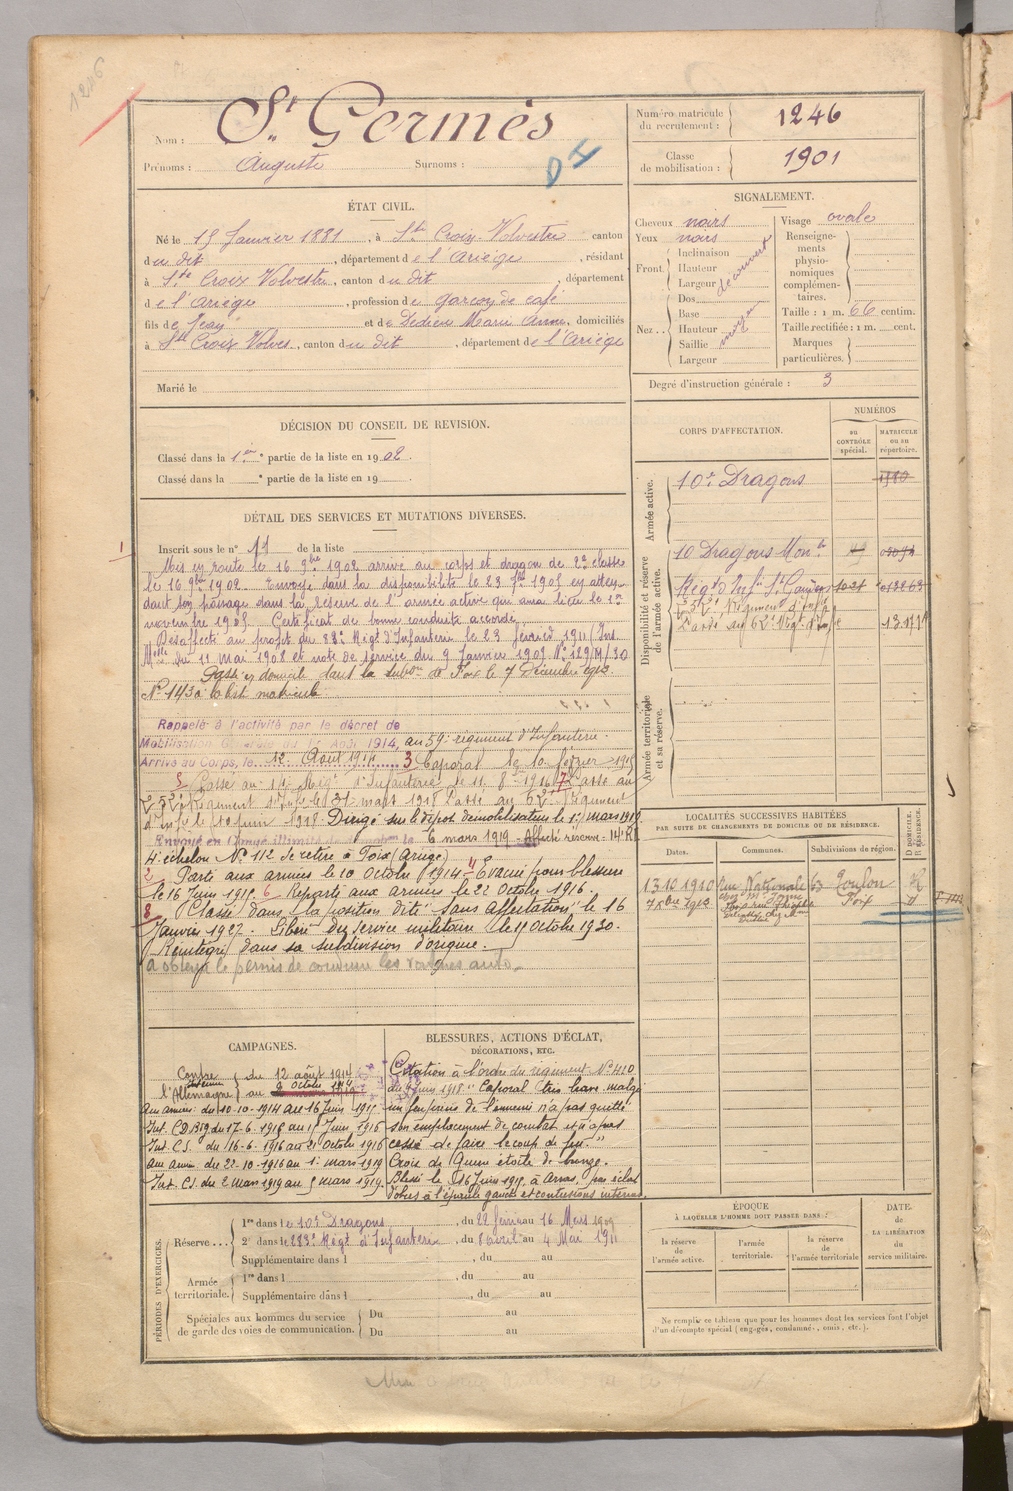 1246
Nom : St Germès
Prénoms : Auguste Surnoms :
Numéro matricule du recrutement : 1246
Classe de mobilisation : 1901
ÉTAT CIVIL.
Né le 15 Janvier 1881, à Ste Croix Volvestre canton
du dit, département de l'Ariège, résidant
à Ste Croix Volvestre, canton du dit, département
de l'Ariège, profession de garçon de café
fils de Jean et de Dedieu Marie Anne, domiciliés
à Ste Croix Volves., canton du dit, département de l'Ariège
Marié le
SIGNALEMENT.
Cheveux noirs
Yeux noirs
Front Inclinaison
Hauteur
Largeur
découvert
Nez Dos
Base
Hauteur
Saillie
Largeur
moyen
Visage ovale
Renseignements physionomiques complémentaires.
Taille : 1 m. 66 centim.
Taille rectifiée : 1 m. cent.
Marques particulières.
Degré d'instruction générale : 3
DÉCISION DU CONSEIL DE REVISION.
Classé dans la 1ère partie de la liste en 1902.
Classé dans la e partie de la liste en 19
DÉTAIL DES SERVICES ET MUTATIONS DIVERSES.
Inscrit sous le n° de la liste
Mis en route le 16 9bre 1902 arrivé au corps et dragon de 2e classe
le 16 9bre 1902. Envoyé dans la disponibilité le 23 7bre 1905 en atten-
dant son passage dans la réserve de l'armée active qui aura lieu le 1er
novembre 1905. Certificat de bonne conduite accordé.
Désaffecté au profit du 88e Régt d'Infanterie le 23 février 1911 (Inst
Mlle du 11 mai 1908 et note de service du 9 Janvier 1909 N° 129/M/30
Passé en domicile dans la subon de Foix le 7 Décembre 1913
N° 1430 liste matricule
Rappelé à l'activité par le décret de
Mobilisation Générale du 1er Août 1914, au 59e régiment d'Infanterie.
Arrivé au Corps, le 12 Août 1914 3 Caporal le 10 février 1915
5 Passé au Régt d'Infanterie le 11. 8 1916 7 Passé au
Régiment d'Infie le 31 mars 1918 Passé au 62e Régiment
d'infie le 12 juin 1918. Dirigé sur le dépôt démobilisateur le 1er mars 1919.
Envoyé en Congé illimité de démobon le 6 mars 1919 Affecté réserve
4e échelon N° 112 Se retire à Foix (Ariège)
2 Parti aux armées le 10 Octobre 1914 4 Évacué pour blessure
le 16 Juin 1915. 6 Reparti aux armées le 22 Octobre 1916.
8 Classé dans la position dite "Sans Affectation" le 16
Janvier 1927. Libéré du service militaire le Octobre 1930.
Réintégré dans sa subdivision d'origine.
a obtenu le permis de conduire les voitures auto.
CORPS D'AFFECTATION.
NUMÉROS
au contrôle spécial.
matricule ou au répertoire.
Armée active.
10e Dragons 1980
Disponibilité et réserve de l'armée active.
10 Dragons Montn
Régt d'Infie St Gaudens 1021
Régiment d'infie
Passé au 62e Régt d'infie
Armée territoriale et sa réserve.
LOCALITÉS SUCCESSIVES HABITÉES
PAR SUITE DE CHANGEMENTS DE DOMICILE OU DE RÉSIDENCE.
Dates. Communes. Subdivisions de région. D DOMICILE. R RÉSIDENCE.
13.10 1910 Rue Nationale 63 Toulon R
7 Xbre 1913 Foix
CAMPAGNES.
Contre l'Allemagne
Intérieur du 12 août 1914
au 9 Octobre 1914
Aux armées du 10-10-1914 au 16 Juin 1915
Int. C.D.Blé du 17-6. 1915 au 15 Juin 1916
Int. C.S. du 16-6. 1916 au 21 Octobre 1916
aux armées du 22-10-1916 au 1er mars 1919
Int. C.S. du 2 Mars 1919 au 5 mars 1919.
BLESSURES, ACTIONS D'ÉCLAT,
DÉCORATIONS, ETC.
Citation à l'ordre du régiment N° 410
du 9 Juin 1918 "Caporal très brave malgré
un feu précis de l'ennemi n'a pas quitté
son emplacement de combat et n'a pas
cessé de faire le coup de feu."
Croix de Guerre étoile de bronze.
Blessé le 16 Juin 1915, à Arras, par éclat
d'obus à l'épaule gauche et contusions internes.
PÉRIODES D'EXERCICES.
Réserve... 1re dans le 10e Dragons, du 22 février au 16 Mars 1909
2e dans le 283e Régt d'Infanterie, du 8 avril au 4 Mai 1911
Supplémentaire dans l , du au
Armée territoriale. 1re dans l , du au
Supplémentaire dans l , du au
Spéciales aux hommes du service de garde des voies de communication. Du au
Du au
ÉPOQUE
À LAQUELLE L'HOMME DOIT PASSER DANS :
la réserve de l'armée active.
l'armée territoriale.
la réserve de l'armée territoriale
DATE.
de LA LIBÉRATION du service militaire.
Ne remplir ce tableau que pour les hommes dont les services font l'objet
d'un décompte spécial (engagés, condamnés, omis, etc.).